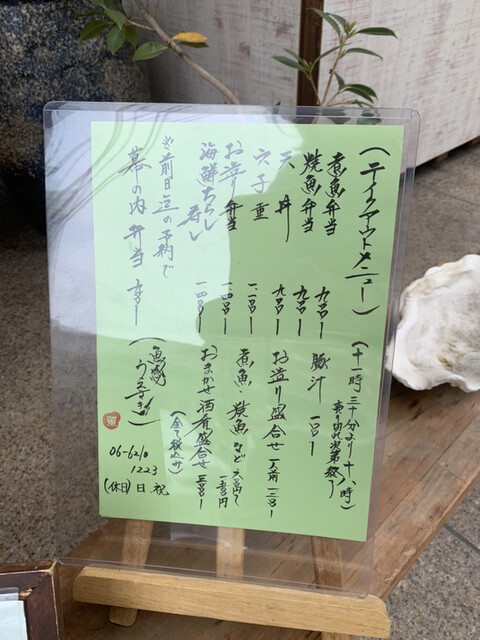 (テイクアウトメニュー)
(十一時三十分より十八時)
売り切れ次第終了
煮魚弁当 九〇〇ー
焼魚弁当 九〇〇ー
天丼 九〇〇ー
穴子重 一二〇〇ー
お造り弁当 一四〇〇ー
海鮮ちらし寿し 一四〇〇ー
※前日迄の予約で
幕の内弁当
豚汁 一〇〇ー
お造り盛合せ 一人前
煮魚・焼魚など
おまかせ酒肴盛合せ
(全て税込み)
06-6210
1223
(休日)日、祝